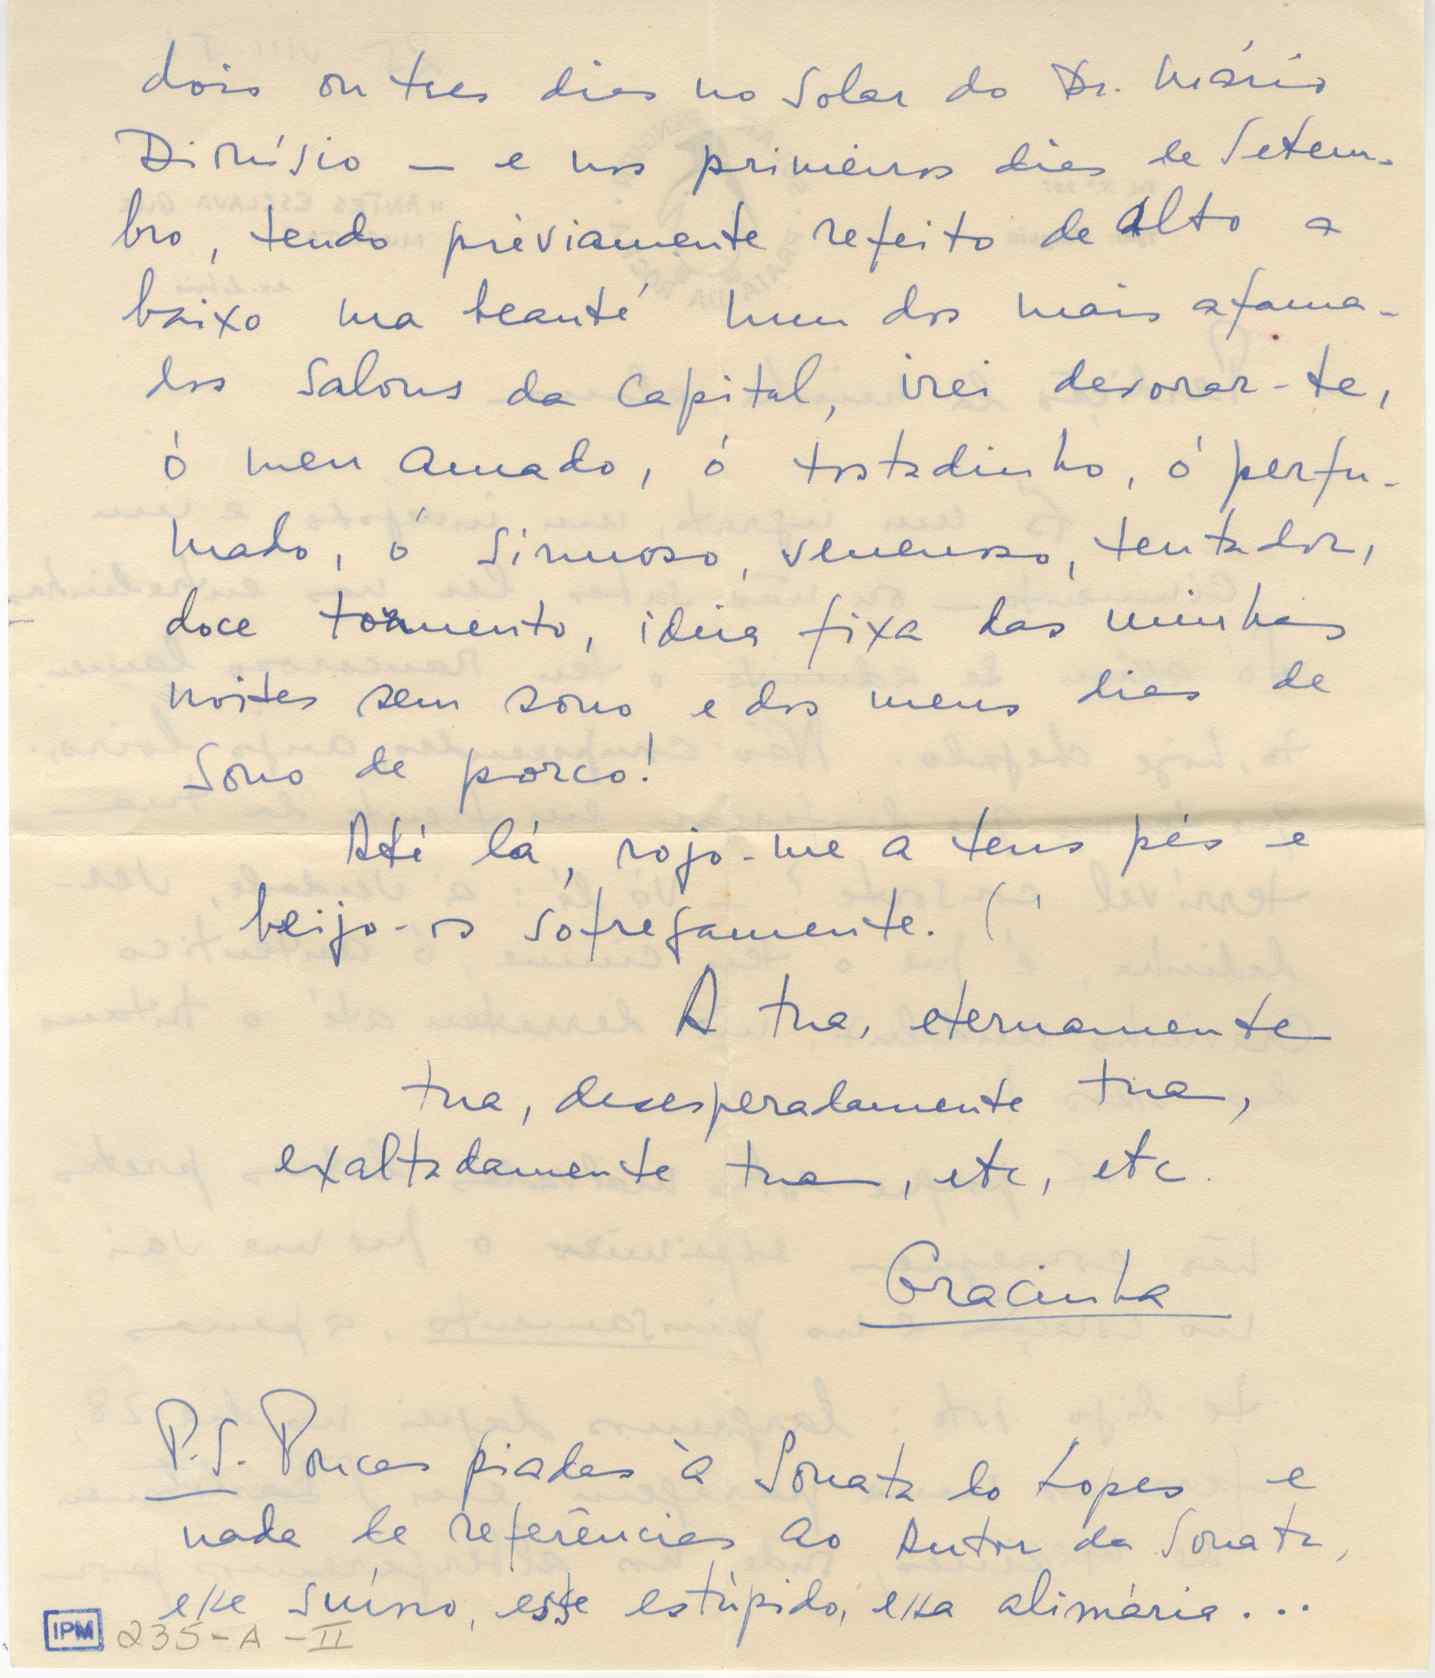 dois ou tres dias no Solar do Dr. Mário
Dionísio — e nos primeiros dias de Setem-
bro, tendo préviamente refeito de alto a
baixo ma beauté num dos mais afama-
dos Salons da Capital, irei devorar-te,
ó meu amado, ó tostadinho, ó perfu-
mado, ó sinuoso, venenoso, tentador,
doce tormento, ideia fixa das minhas
noites sem sono e dos meus dias de
sono de porco!
Até lá, rojo-me a teus pés e
beijo-os sôfregamente. (
A tua, eternamente
tua, desesperadamente tua,
exaltadamente tua, etc, etc.
Gracinha
P.S. Poucas piadas à Sonata do Lopes e
nada de referências ao Autor da Sonata,
esse suíno, esse estúpido, essa alimária...
IPM 235-A-II